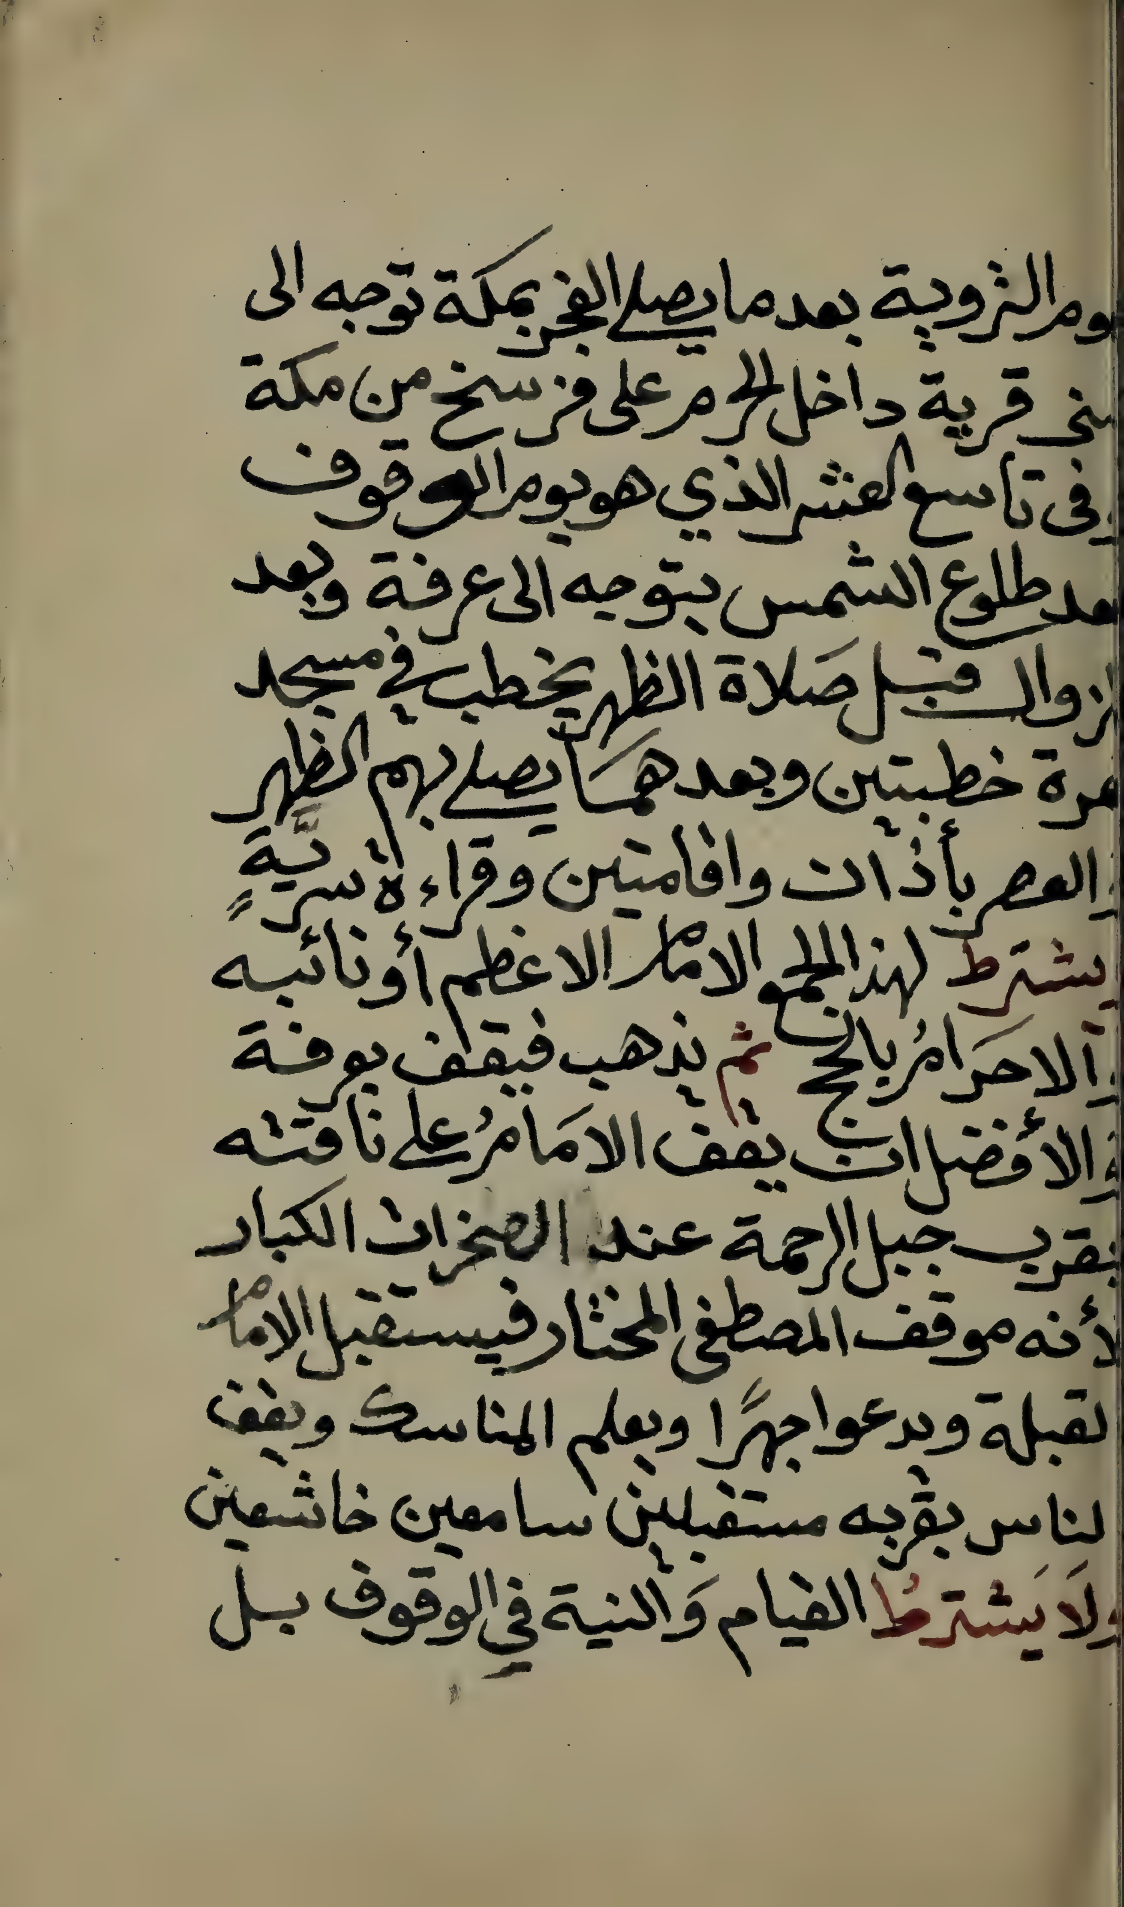 يوم التروية بعد ما يصلي الفجر بمكة توجه الى
منى قرية داخل الحرم على فرسخ من مكة
وفى تاسع العشر الذي هو يوم الوقوف
بعد طلوع الشمس يتوجه الى عرفة وبعد
الزوال قبل صَلاة الظهر يخطب في مسجد
نمرة خطبتين وبعدهمَا يصلي بهم الظهر
و العصر بأذان واقامتين وقراءة سريَّةٍ
يشترط لهذا الجمع الامام الاعظم أو نائبه
و الاحرَامُ بالحج ثم يذهب فيقف بعرفة
و الأفضل ان يقف الامَامُ على ناقته
بقرب جبل الرحمة عند الصخرات الكبار
لأنه موقف المصطفى المختار فيستقبل الامام
لقبلة ويدعوا جهرًا ويعلم المناسك ويقف
لناس بقربه مستقبلين سامعين خاشعين
ولَا يَشترطُ القيام وَالنية في الوقوف بل